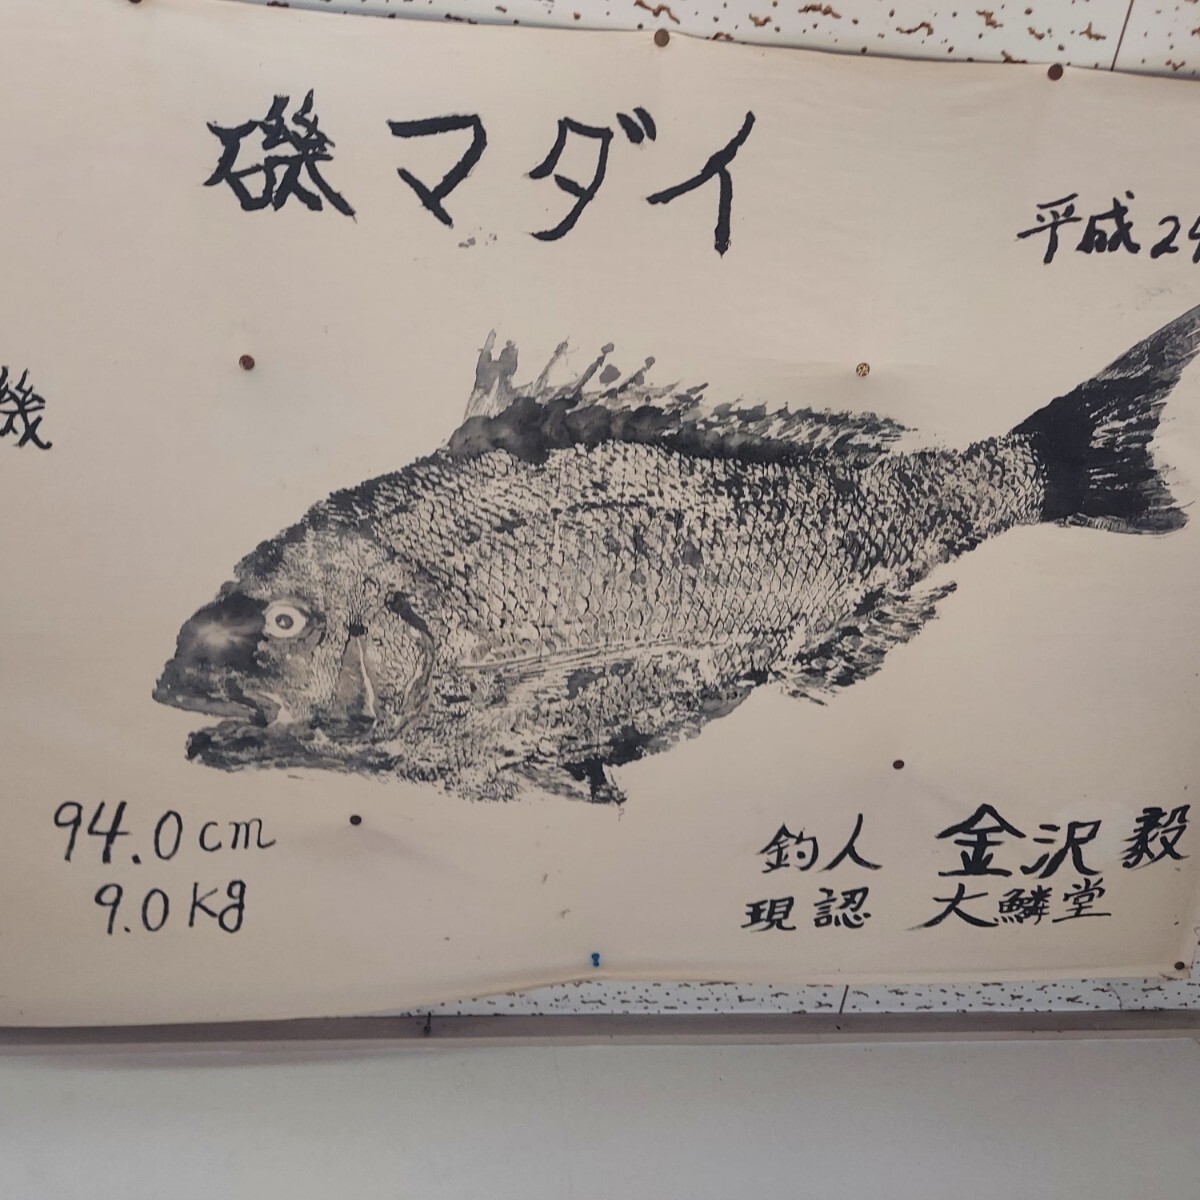 磯マダイ
平成24
幾
94.0cm
9.0kg
釣人 金沢 毅
現認 大鱗堂